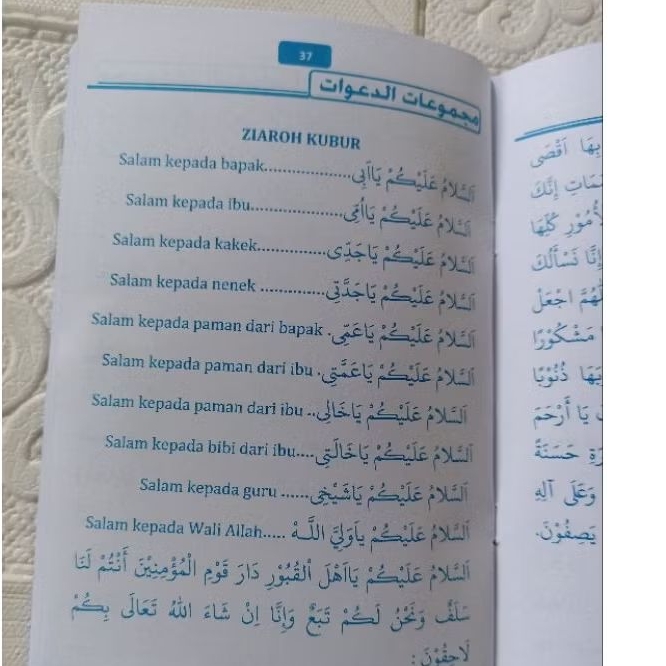 37
مجموعات الدعوات
ZIAROH KUBUR
Salam kepada bapak..................اَلسَّلَامُ عَلَيْكُمْ يَااَبِى
Salam kepada ibu...................اَلسَّلَامُ عَلَيْكُمْ يَااُمِّى
Salam kepada kakek..............اَلسَّلَامُ عَلَيْكُمْ يَاجَدِّى
Salam kepada nenek .............اَلسَّلَامُ عَلَيْكُمْ يَاجَدَّتِى
Salam kepada paman dari bapak .اَلسَّلَامُ عَلَيْكُمْ يَاعَمِّى
Salam kepada paman dari ibu .اَلسَّلَامُ عَلَيْكُمْ يَاعَمَّتِى
Salam kepada paman dari ibu ..اَلسَّلَامُ عَلَيْكُمْ يَاخَالِى
Salam kepada bibi dari ibu....اَلسَّلَامُ عَلَيْكُمْ يَاخَالَتِى
Salam kepada guru ......اَلسَّلَامُ عَلَيْكُمْ يَاشَيْخِى
Salam kepada Wali Allah..... اَلسَّلَامُ عَلَيْكُمْ يَاوَلِيَّ اللَّـهْ
اَلسَّلَامُ عَلَيْكُمْ يَااَهْلَ اْلقُبُوْرِ دَارَ قَوْمِ الْمُؤْمِنِيْنَ أَنْتُمْ لَنَا
سَلَفٌ وَنَحْنُ لَكُمْ تَبَعٌ وَإِنَّا اِنْ شَاءَ اللهُ تَعَالَى بِكُمْ
لَاحِقُوْنَ :
بِهَا اَقْصَى
إِنَّكَ
لْأُمُوْرِ كُلِّهَا
إِنَّا نَسْأَلُكَ
لّٰهُمَّ اجْعَلْ
مَشْكُوْرًا
بِهَا ذُنُوْبًا
يَا أَرْحَمَ
حَسَنَةً
وَعَلَى آلِهِ
يَصِفُوْنَ.